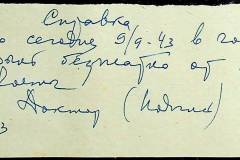 Справка
о сегодня 9/9-43 в го
безплатно от
Доктор (Подпись)
3